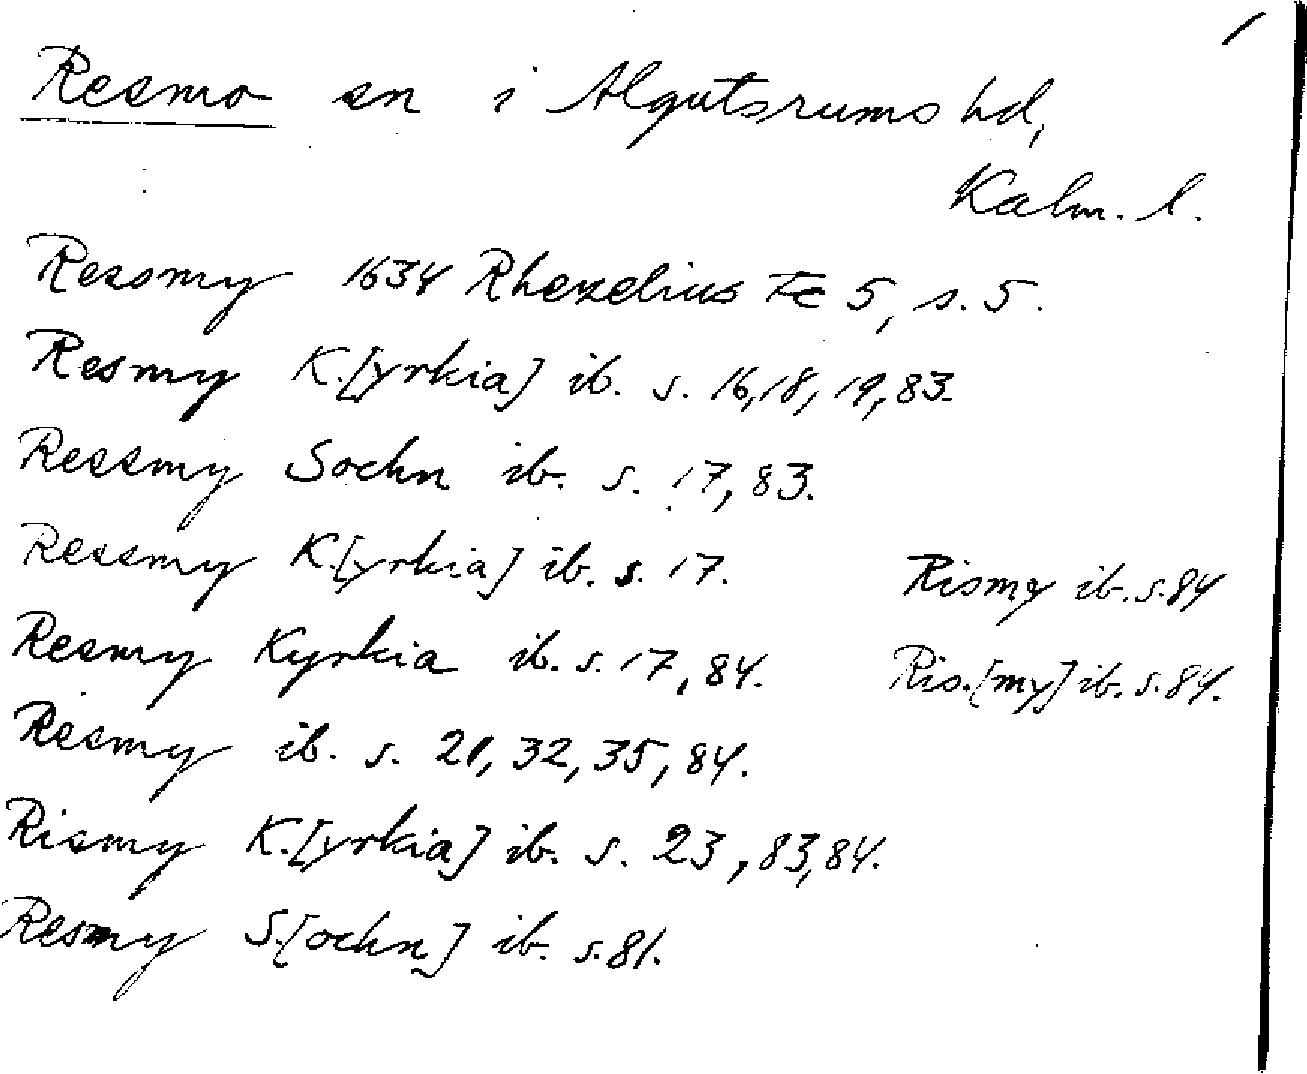 Resmo sn i Algutsrums hd,
Kalm. l.
Resomy 1634 Rhezelius Fc 5, s. 5.
Resmy K.[yrkia] ib. s. 16,18,19,83.
Ressmy Sochn ib. s. 17,83.
Ressmy K.[yrkia] ib. s. 17.
Rismy ib. s. 84
Resmy Kyrkia ib. s. 17,84.
Ris.[my] ib. s. 84.
Resmy ib. s. 21, 32, 35, 84.
Rismy K.[yrkia] ib. s. 23, 83,84.
Resmy S.[ochn] ib. s. 81.